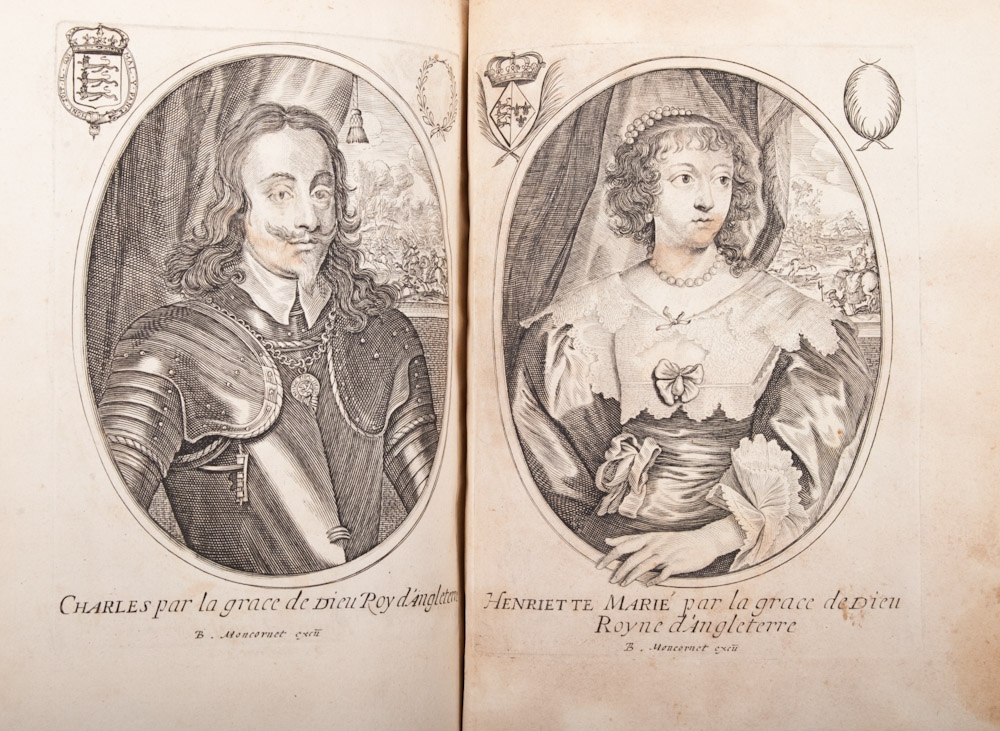 CHARLES par la grace de Dieu Roy d'Angleterre
B. Moncornet excū
HENRIETTE MARIE par la grace de Dieu
Royne d'Angleterre
B. Moncornet excū